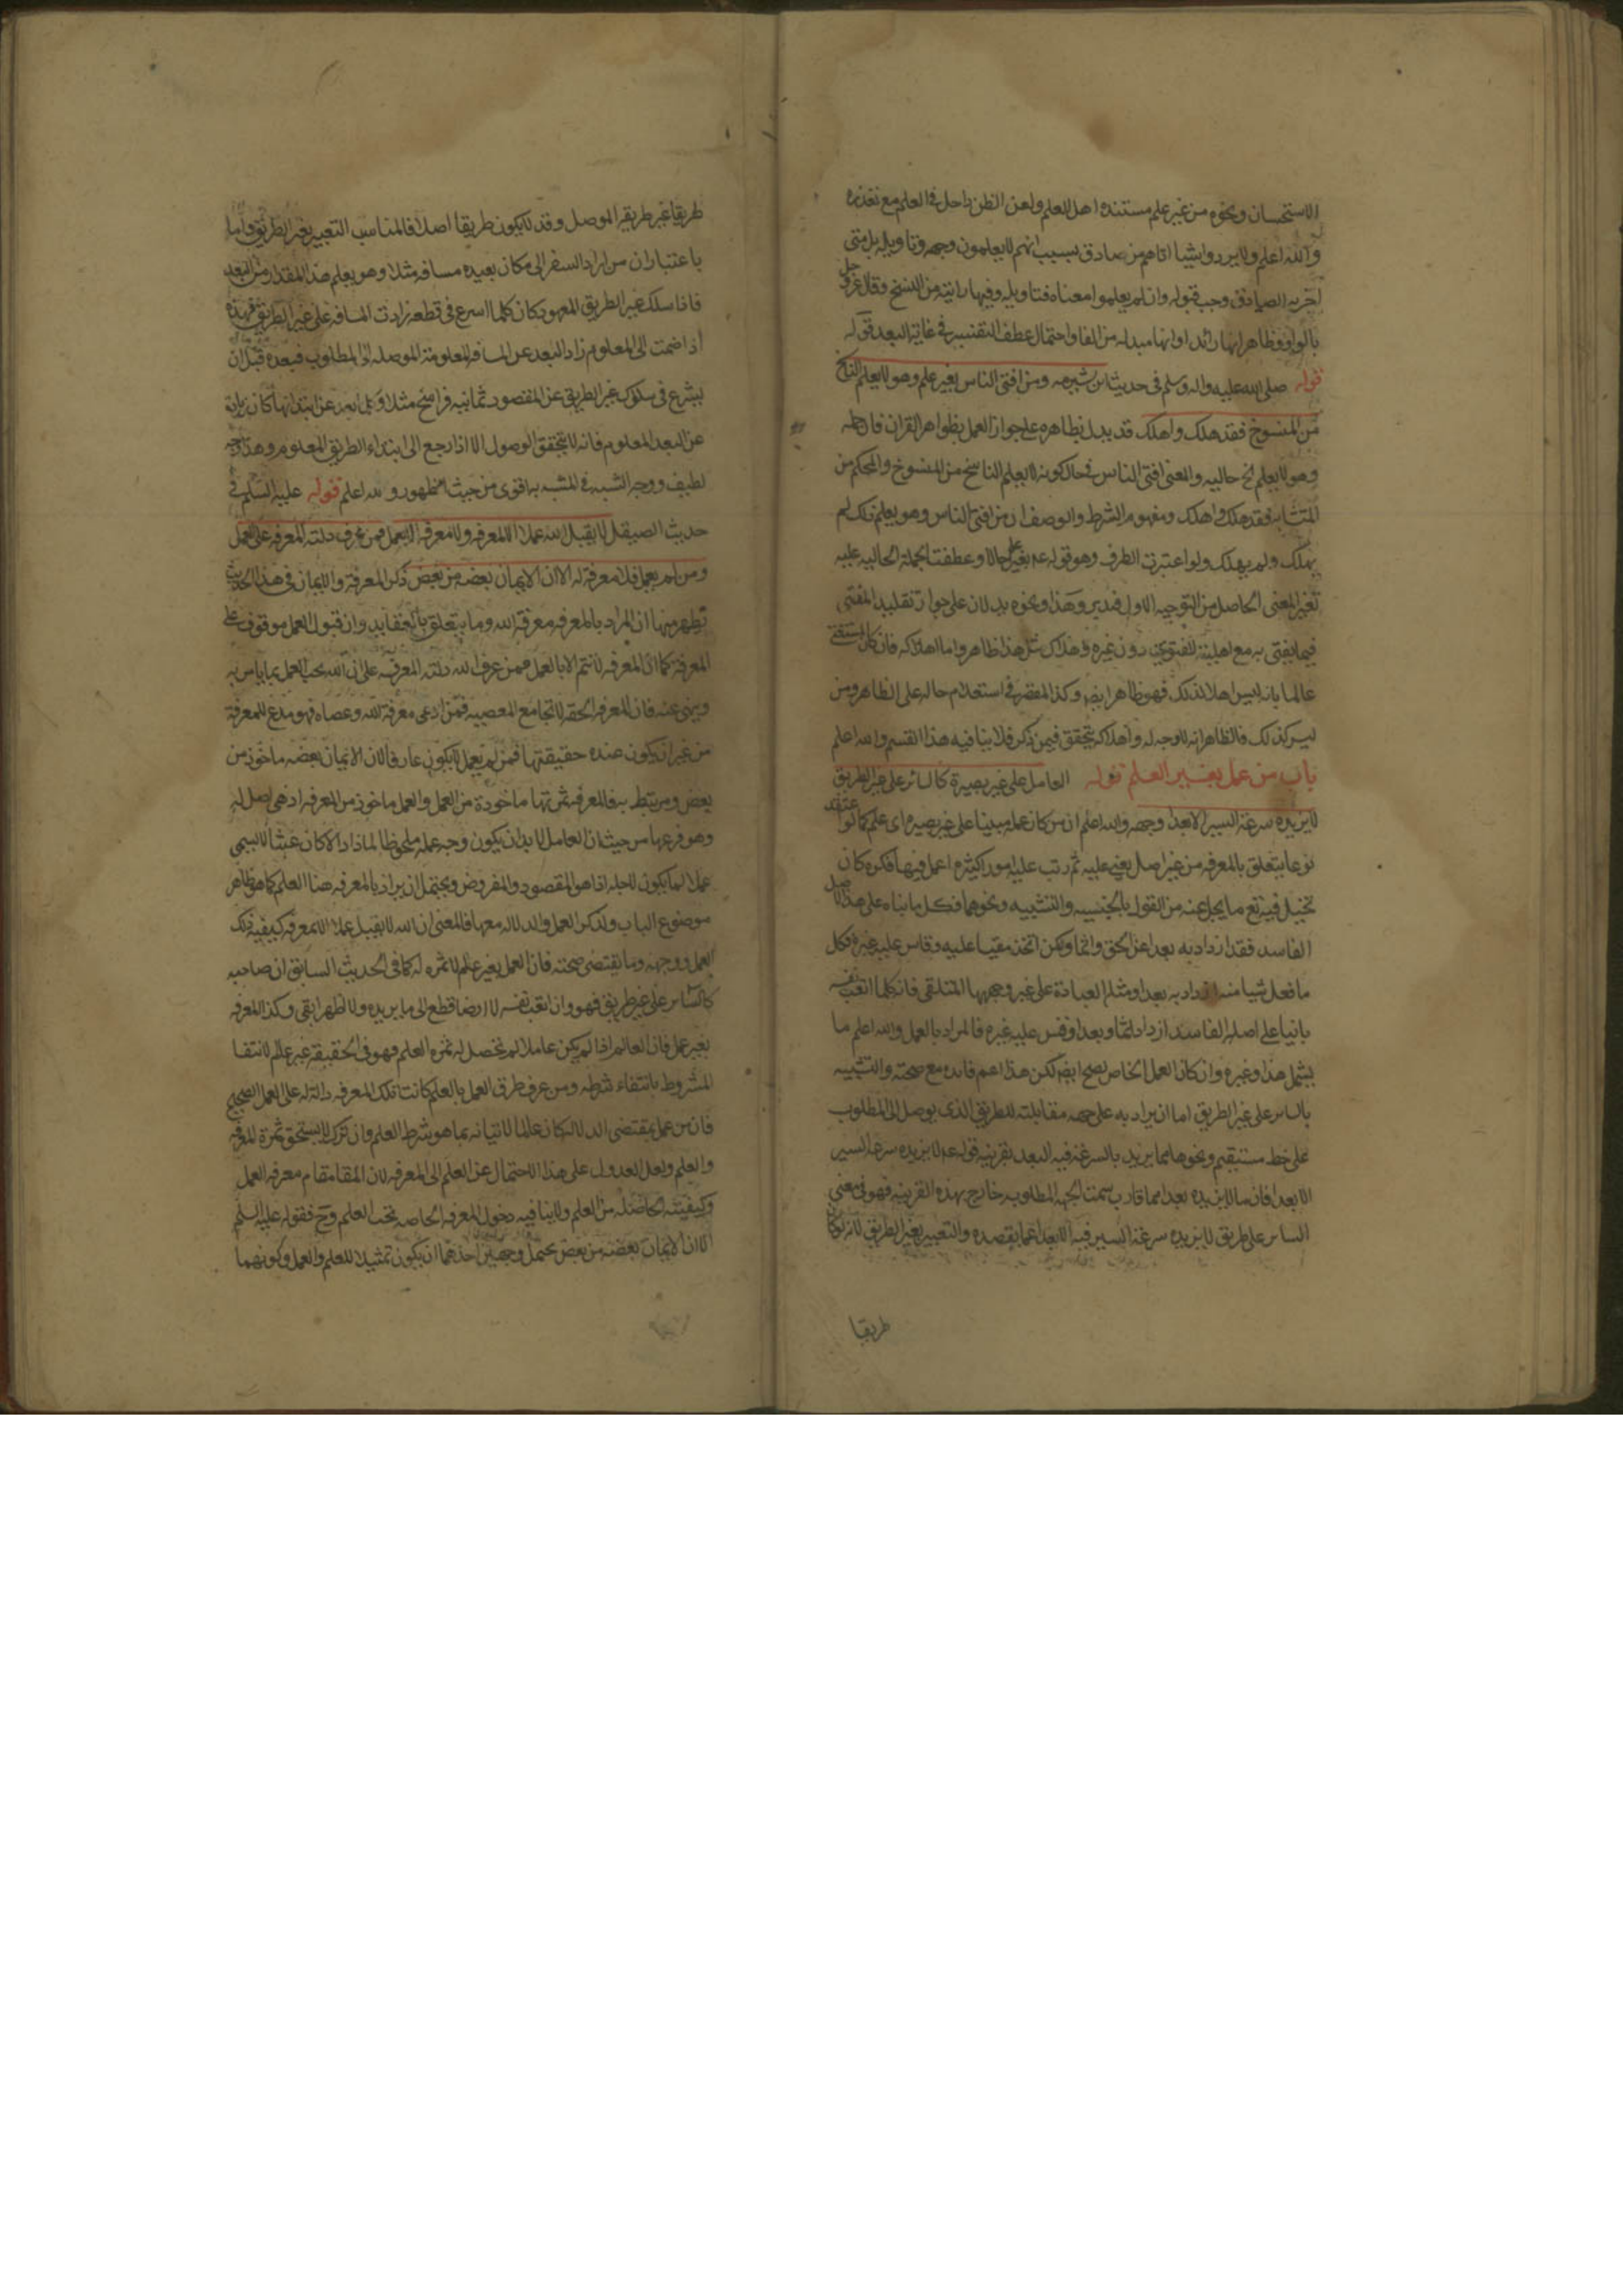 الاستحسان ونحوه من غير علم مستنده اهل العلم ولعن الظن داخل في العلم مع تعذره
والله اعلم ولا يردوا شيئا اتاهم من صادق بسبب انهم لا يعلمون وجهه وتاويله بل متى
اخبر به الصادق وجب قبوله وان لم يعلموا معناه فتاويله وفيها رايته من النسخ وقال عز وجل
بالواو فظاهر انها زائد او انها مبدله من الفا واحتمال عطف التفسير في غاية البعد قوله
قوله صلى الله عليه واله وسلم في حديث ابن شبرمه ومن افتى الناس بغير علم وهو لا يعلم الناسخ
من المنسوخ فقد هلك واهلك قد يدل بظاهره على جواز العمل بظواهر القران فان جملة
وهو لا يعلم الخ حاليه والمعنى افتى الناس في حال كونه لا يعلم الناسخ من المنسوخ والمحكم من
المتشابه فقد هلك واهلك ومفهوم الشرط والوصف ان من افتى الناس وهو يعلم ذلك لم
يهلك ولم يهلك ولو اعتبرت الظرف وهو قوله عم بغير علم حالا وعطفت الجملة الحاليه عليه
تغير المعنى الحاصل من التوجيه الاول فتدبر وهذا ونحوه يدلان على جواز تقليد المفتي
فيما يفتي به مع اهليته للفتوى دون غيره وهلاك مثل هذا ظاهر واما اهلاكه فان كان المستفتي
عالما بانه ليس اهلا لذلك فهو ظاهر ايضا وكذا المقصر في استعلام حاله على الظاهر ومن
ليس كذلك فالظاهر انه لا وجه له واهلاكه يتحقق فيمن ذكر فلا ينافيه هذا القسم والله اعلم
باب من عمل بغير العلم قوله العامل على غير بصيرة كالسائر على غير الطريق
لا يزيده سرعة السير الا بعدا وجهه والله اعلم ان من كان عمله مبنيا على غير بصيره اي علم كما لو اعتقد
نوعا يتعلق بالمعرفه من غير اصل يعني عليه ثم رتب عليه امورا كثيره اعمل فيها فكره كان
تخيل فيه تع ما يجل عنه من القول بالجسميه والتشبيه ونحوهما فكل ما بناه على هذا الاصل
الفاسد فقد ازداد به بعدا عن الحق واثما ولكن اتخذ مقيسا عليه وقاس عليه غيره فكل
ما فعل شيا منه ازداد به بعدا ومثله العبادة على غير وجهها المتلقى فانه كلما اتعب نفسه
بانيا على اصله الفاسد ازداد اثما وبعدا وقس عليه غيره فالمراد بالعمل والله اعلم ما
يشمل هذا وغيره وان كان العمل الخاص يصح ايضا لكن هذا اعم فائده مع صحته والتشبيه
بالسائر على غير الطريق اما ان يراد به على جهه مقابلته للطريق الذي يوصل الى المطلوب
على خط مستقيم ونحوها مما يزيد بالسرعة فيه البعد بقرينه قوله عم لا يزيده سرعة السير
الا بعدا فان ما لا يزيده بعدا مما قارب سمت الجهه المطلوبه خارج بهذه القرينه فهو في معنى
السائر على طريق لا يزيده سرعة السير فيه الا بعدا عما يقصده والتعبير بغير الطريق لانه لو كان
طريقا
طريقا غير طريقه الموصل وقد لا يكون طريقا اصلا فالمناسب التعبير بغير الطريق واما
باعتبار ان من اراد السفر الى مكان بعيده مسافه مثلا وهو يعلم هذا المقدار من البعد
فاذا سلك غير الطريق المعهود كان كلما اسرع في قطعه زادت المسافه على غير الطريق فهذه
اذا ضمت الى المعلوم زاد البعد عن المسافه المعلومة الموصله الى المطلوب فبعده قبل ان
يشرع في سلوك غير الطريق عن المقصود ثمانيه فراسخ مثلا
عن البعد المعلوم فانه لا يتحقق الوصول الا اذا رجع الى ابتداء الطريق المعلوم وهذا وجه
لطيف ووجه الشبه في المشبه به اقوى من حيث ظهور والله اعلم قوله عليه السلم في
حديث الصيقل لا يقبل الله عملا الا بمعرفه ولا معرفه الا بعمل فمن عرف دلته المعرفه على العمل
ومن لم يعمل فلا معرفة له الا ان الايمان بعضه من بعض ذكر المعرفة والايمان في هذا الحديث
تظهر منها ان المراد بالمعرفه معرفة الله وما يتعلق بالعقايد وان قبول العمل موقوف على
المعرفة كما ان المعرفه لا تتم الا بالعمل فمن عرف الله دلته المعرفه على ان الله يحب العمل بما يامر به
وينهى عنه فان المعرفه الحقه لا تجامع المعصيه فمن ادعى معرفة الله وعصاه فهو مدع للمعرفة
من غير ان يكون عنده حقيقتها فمن لم يعمل لا يكون عارفا لان الايمان بعضه ماخوذ من
بعض ومرتبط به فالمعرفه ثمرتها ماخوذة من العمل والعمل ماخوذ من المعرفه اذ هي اصل له
وهو فرعها من حيث ان العامل لا بد ان يكون وجه عمله ملحوظا لماذا والا كان عبثا لا يسمى
عملا لما يكون لاجله اذا هو المقصود والمفروض ويحتمل ان يراد بالمعرفه هنا العلم كما هو ظاهر
موضوع الباب ولذكر العمل والدلاله معها فالمعنى ان الله لا يقبل عملا الا بمعرفه كيفيه ذلك
العمل ووجهه وما يقتضي صحته فان العمل بغير علم لا ثمره له كما في الحديث السابق ان صاحبه
كالسائر على غير طريق فهو وان اتعب نفسه لا ارضا قطع الى ما يريده ولا ظهرا ابقى وكذا المعرفه
بغير عمل فان العالم اذا لم يكن عاملا لم تحصل له ثمره العلم فهو في الحقيقة غير عالم لانتفا
المشروط بانتفاء شرطه ومن عرف طرق العمل بالعلم كانت تلك المعرفه دالة له على العمل الصحيح
فان من عمل بمقتضى الدلاله كان عالما لاتيانه بما هو شرط العلم وان ترك لا يستحق ثمرة المعرفه
والعلم ولعل العدول على هذا الاحتمال عن العلم الى المعرفه لان المقام مقام معرفه العمل
وكيفيته الحاصله من العلم ولا ينافيه دخول المعرفه الخاصه تحت العلم وح فقوله عليه السلم
الا ان الايمان بعضه من بعض يحتمل وجهين احدهما ان يكون تمثيلا للعلم والعمل وكونهما